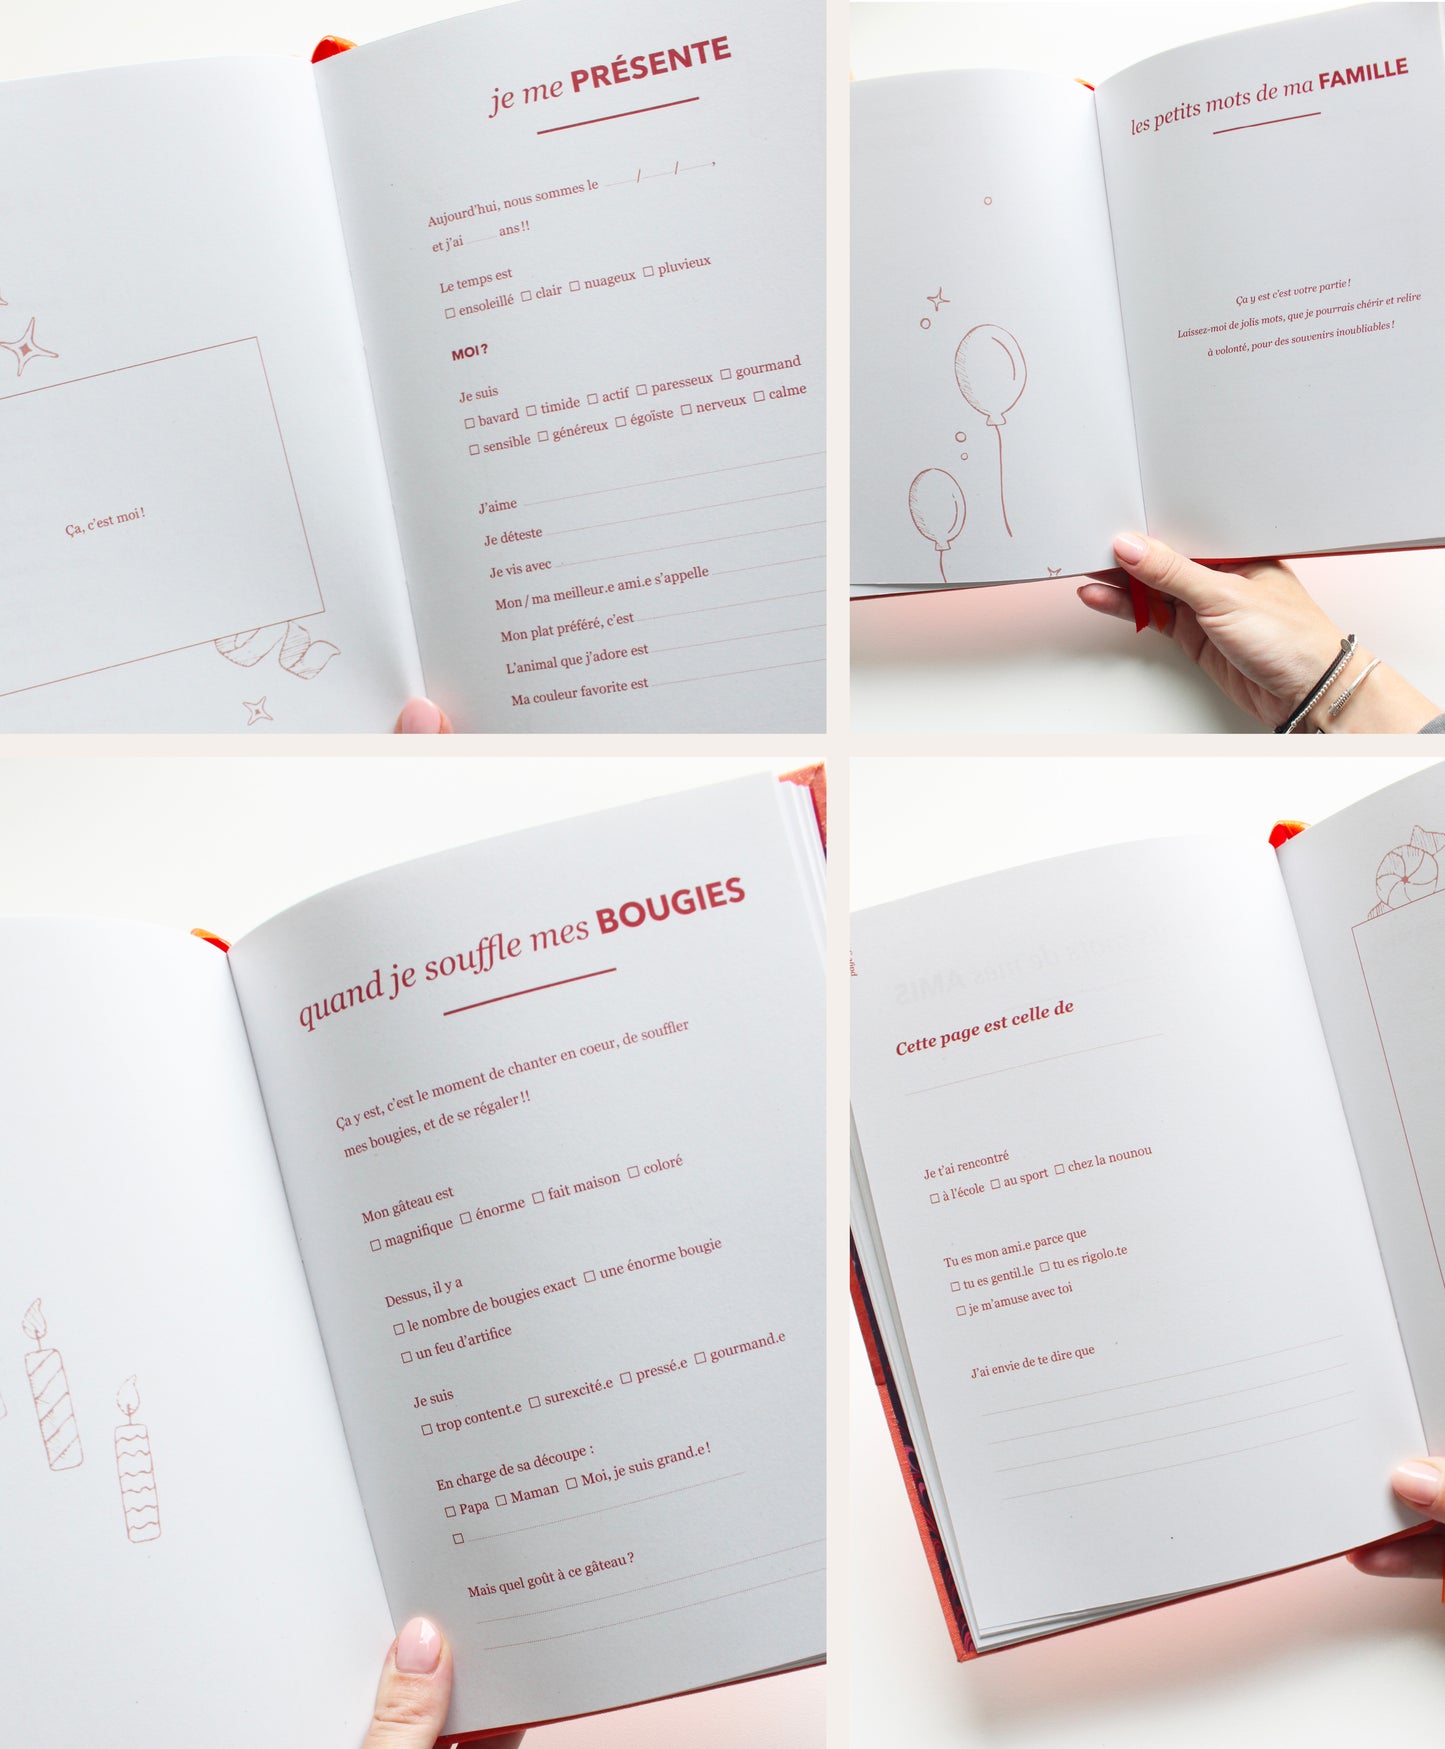 je me PRÉSENTE
Aujourd'hui, nous sommes le ...... / ...... / ......,
et j'ai ...... ans !!
Le temps est
☐ ensoleillé ☐ clair ☐ nuageux ☐ pluvieux
MOI ?
Je suis
☐ bavard ☐ timide ☐ actif ☐ paresseux ☐ gourmand
☐ sensible ☐ généreux ☐ égoïste ☐ nerveux ☐ calme
J'aime
Je déteste
Je vis avec
Mon / ma meilleur.e ami.e s'appelle
Mon plat préféré, c'est
L'animal que j'adore est
Ma couleur favorite est
Ça, c'est moi !
les petits mots de ma FAMILLE
Ça y est c'est votre partie !
Laissez-moi de jolis mots, que je pourrais chérir et relire
à volonté, pour des souvenirs inoubliables !
quand je souffle mes BOUGIES
Ça y est, c'est le moment de chanter en coeur, de souffler
mes bougies, et de se régaler !!
Mon gâteau est
☐ magnifique ☐ énorme ☐ fait maison ☐ coloré
Dessus, il y a
☐ le nombre de bougies exact ☐ une énorme bougie
☐ un feu d'artifice
Je suis
☐ trop content.e ☐ surexcité.e ☐ pressé.e ☐ gourmand.e
En charge de sa découpe :
☐ Papa ☐ Maman ☐ Moi, je suis grand.e !
☐
Mais quel goût à ce gâteau ?
Cette page est celle de
Je t'ai rencontré
☐ à l'école ☐ au sport ☐ chez la nounou
Tu es mon ami.e parce que
☐ tu es gentil.le ☐ tu es rigolo.te
☐ je m'amuse avec toi
J'ai envie de te dire que